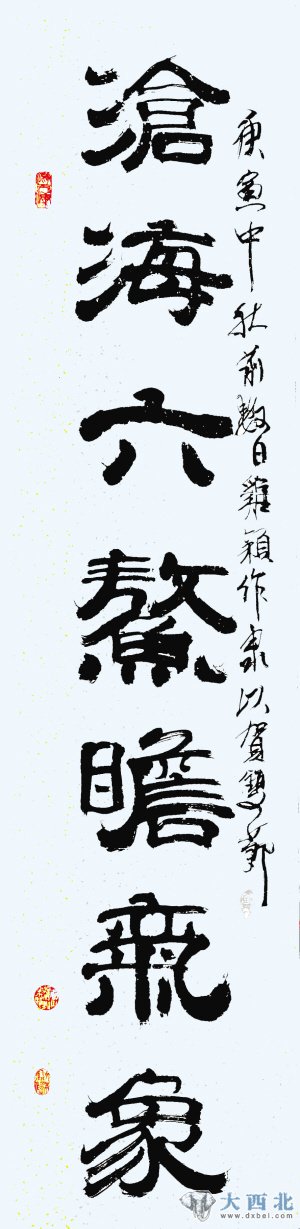 庚寅中秋前數日雞穎作隶以賀雙節
滄海六鰲瞻氣象
大西北
www.dxbei.com